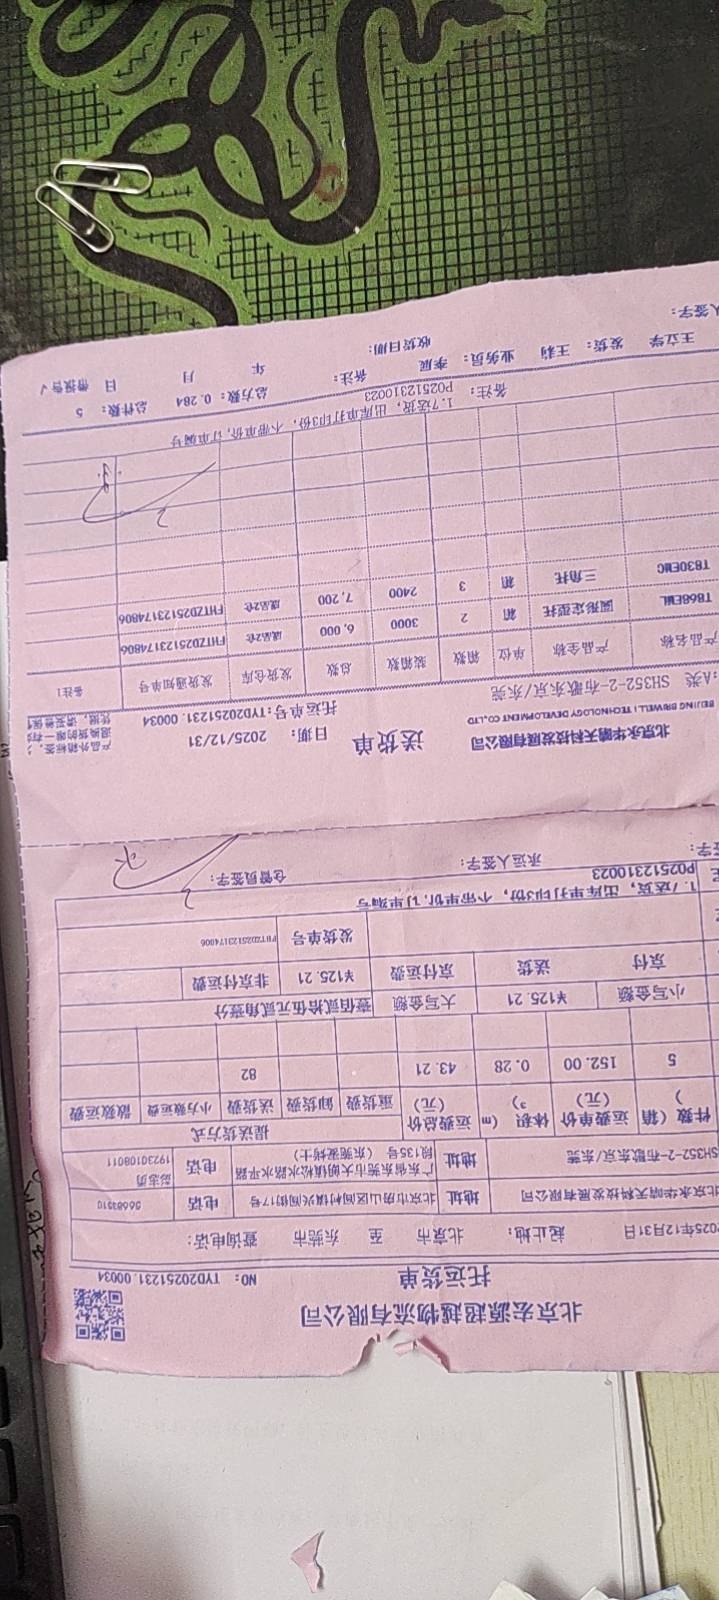 北京宏源超越物流有限公司
托运货单
NO: TYD20251231.00034
2025年12月31日 起止地: 北京市 至 东莞市 查询电话:
北京永华晴天科技发展有限公司 地址 北京市房山区阎村镇兴阎街17号 电话
SH352-2-布歌东京/东莞 地址 广东省东莞市大朗镇松水路水平路段135号(东莞亚特士) 电话 彭志勇 19230108011
件数(箱) 运费单价(元) 体积(m³) 运费总价(元) 提送货方式
重货费 卸货费 送货费 小方数运费 散数运费
5 152.00 0.28 43.21 82
小写金额 ¥125.21 大写金额 壹佰贰拾伍元贰角壹分
京付 送货 京付运费 ¥125.21 非京付运费
发货单号 FHTZD251231174806
1.7送货, 出库单打印3份, 不带单价,订单编号
PO2512310023
签字: 承运人签字: 仓管员签字:
北京永华晴天科技发展有限公司 送货单 日期: 2025/12/31
BEIJING BRIWELL TECHNOLOGY DEVELOPMENT CO.,LTD
托运单号:TYD20251231.00034
:A类 SH352-2-布歌东京/东莞
产品名称 产品全称 单位 箱数 装箱数 总数 发货仓库 发货通知单号 备注1
T868EML 圆形定型托 箱 2 3000 6,000 成品2仓 FHTZD251231174806
T830EMC 三角托 箱 3 2400 7,200 成品2仓 FHTZD251231174806
备注: 1.7送货, 出库单打印3份, 不带单价,订单编号
PO2512310023
总方数: 0.284 总件数: 5
王立学 发货: 王莉 业务员: 李展 备注:
人签字: 收货日期: 年 月 日 需报告√